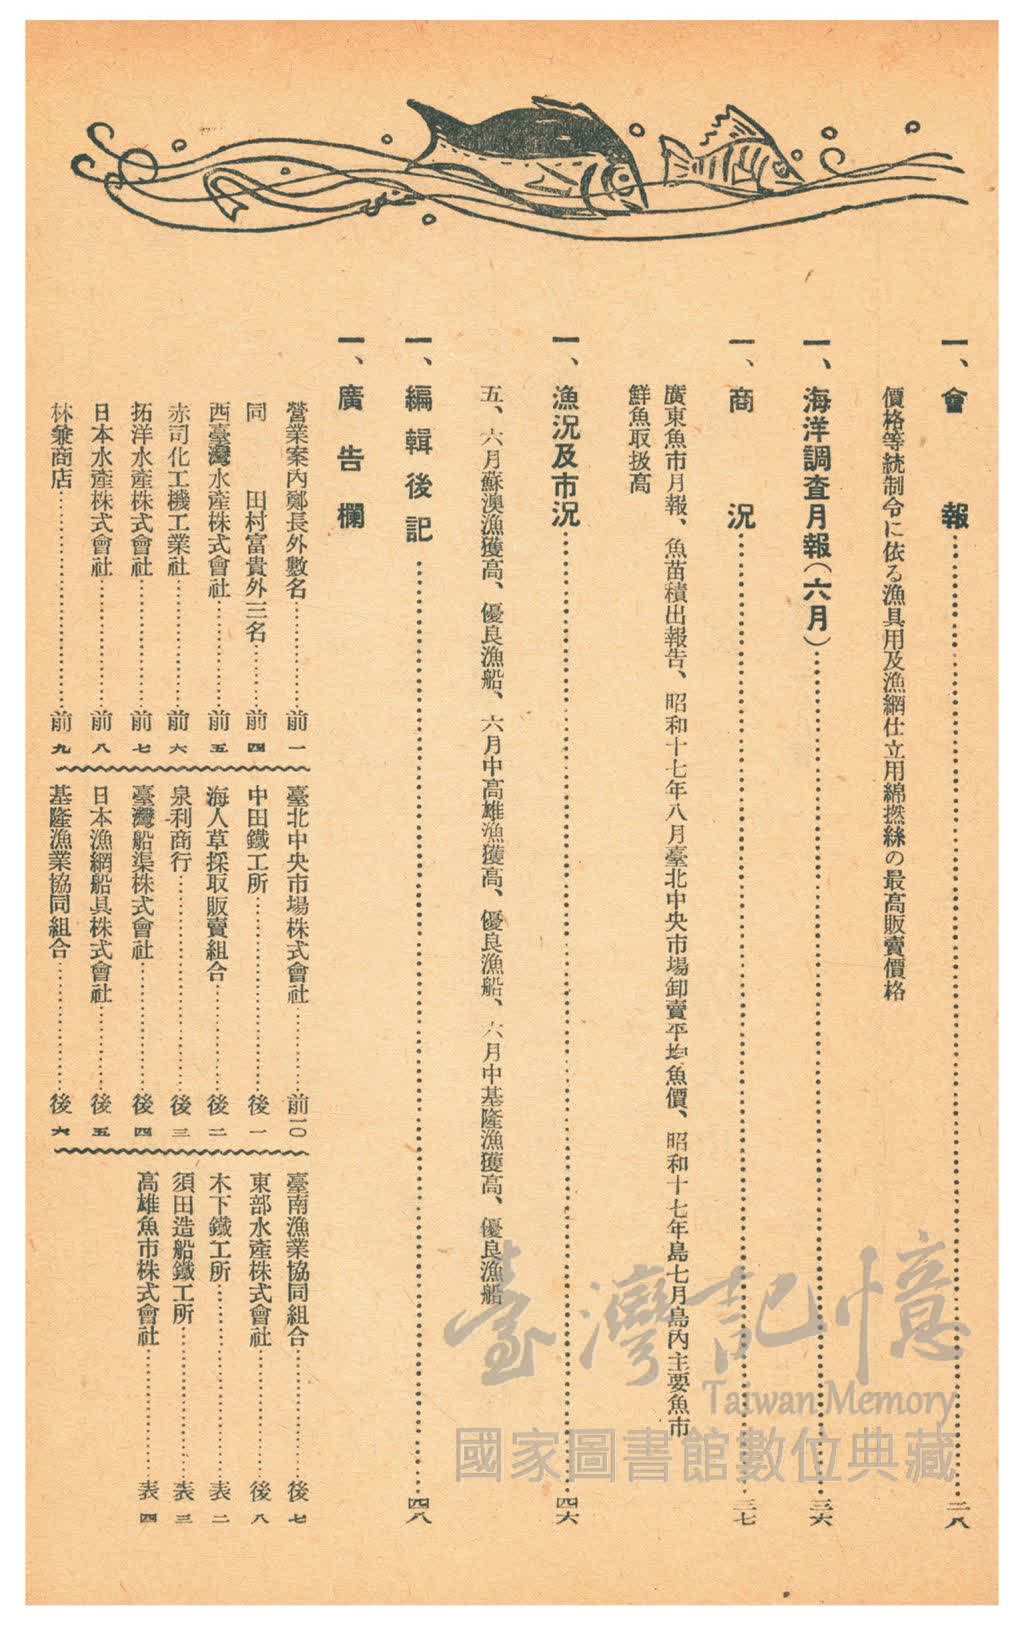 一、會報……二八
價格等統制令に依る漁具用及漁網仕立用綿撚絲の最高販賣價格
一、海洋調査月報（六月）……三六
一、商況……三七
廣東魚市月報、魚苗積出報告、昭和十七年八月臺北中央市場卸賣平均魚價、昭和十七年島七月島內主要魚市
鮮魚取扱高
一、漁況及市況……四六
五、六月蘇澳漁獲高、優良漁船、六月中高雄漁獲高、優良漁船、六月中基隆漁獲高、優良漁船
一、編輯後記……四八
一、廣告欄
營業案內鄭長外數名……前一
同 田村富貴外三名……前四
西臺灣水產株式會社……前五
赤司化工機工業社……前六
拓洋水產株式會社……前七
日本水產株式會社……前八
林兼商店……前九
臺北中央市場株式會社……前一〇
中田鐵工所……後一
海人草採取販賣組合……後二
泉利商行……後三
臺灣船渠株式會社……後四
日本漁網船具株式會社……後五
基隆漁業協同組合……後六
臺南漁業協同組合……後七
東部水產株式會社……後八
木下鐵工所……表二
須田造船鐵工所……表三
高雄魚市株式會社……表四
臺灣記憶
Taiwan Memory
國家圖書館數位典藏